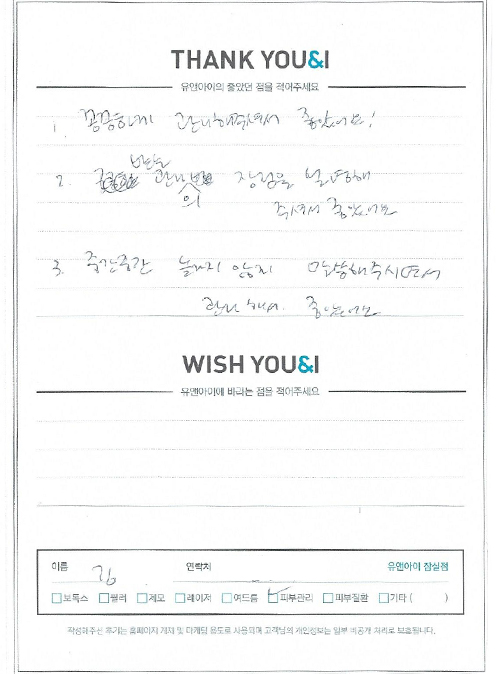 THANK YOU&I
유앤아이의 좋았던 점을 적어주세요
1. 꼼꼼하게 관리해주셔서 좋았어요!
2. 관리 의 장점을 설명해
주셔서 좋았어요
3. 중간중간 놀라지 않게 말씀해주시면서
관리 해서 좋았어요
WISH YOU&I
유앤아이에 바라는 점을 적어주세요
이름 김 연락처 유앤아이 잠실점
보톡스 필러 제모 레이저 여드름 피부관리 피부질환 기타 ( )
작성해주신 후기는 홈페이지 게재 및 마케팅 용도로 사용되며 고객님의 개인정보는 일부 비공개 처리로 보호됩니다.